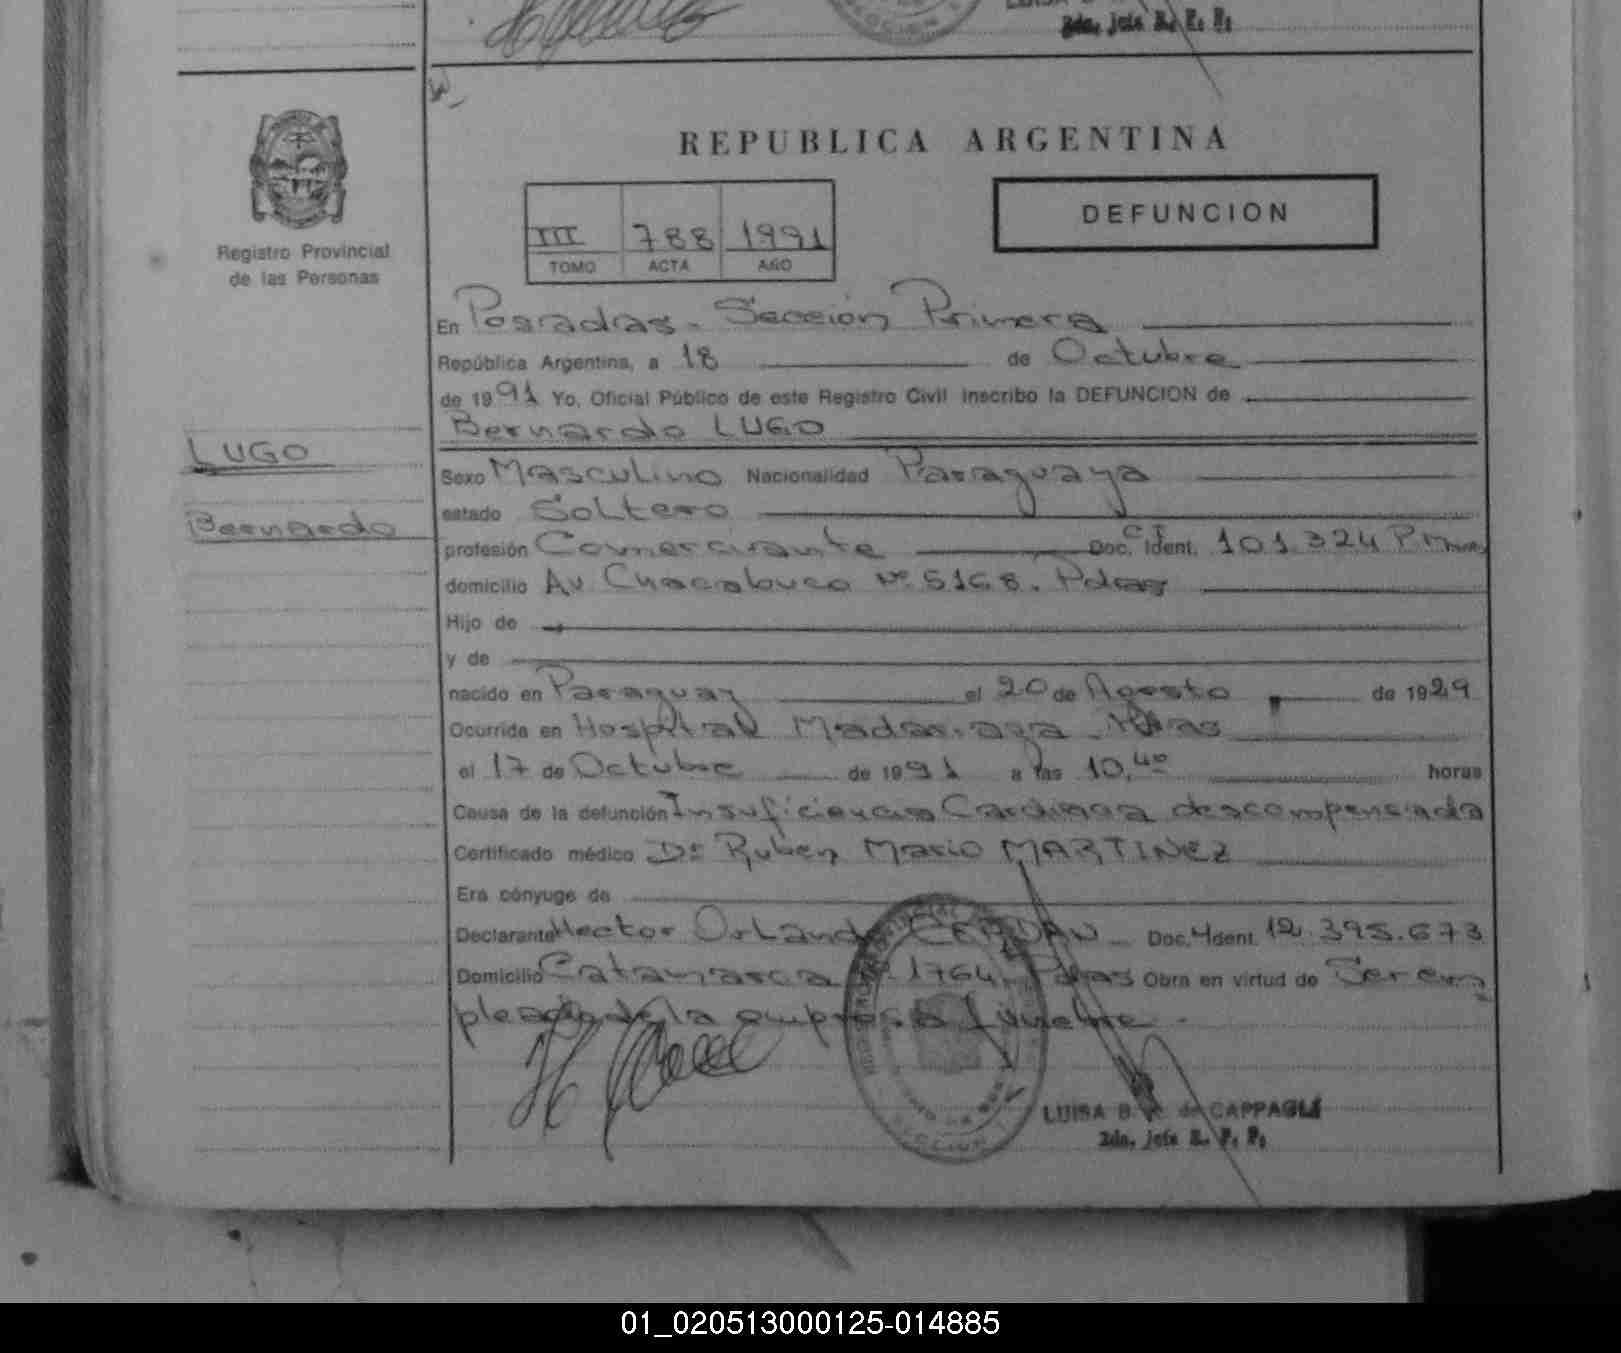 2da. Jefe R. P. P.
REPUBLICA ARGENTINA
DEFUNCION
III 788 1991
TOMO ACTA AÑO
Registro Provincial
de las Personas
En Posadas. Sección Primera
República Argentina, a 18 de Octubre
de 1991 Yo, Oficial Público de este Registro Civil inscribo la DEFUNCION de
Bernardo LUGO
LUGO
Bernardo
Sexo Masculino Nacionalidad Paraguaya
estado Soltero
profesión Comerciante Doc. C.I. Ident. 101.324 P.
domicilio Av Chacabuco Nº 5168. Pdas
Hijo de
y de
nacido en Paraguay el 20 de Agosto de 1929
Ocurrida en Hospital Madariaga Pdas
el 17 de Octubre de 1991 a las 10,40 horas
Causa de la defunción Insuficiencia Cardiaca descompensada
Certificado médico Dr Ruben Mario MARTINEZ
Era cónyuge de
Declarante Hector Orlando Doc. Ident. 12.395.673
Domicilio Catamarca Nº 1764 Pdas Obra en virtud de Ser em
pleado de la empresa fúnebre.
LUISA B. de CAPPAGLI
2da. Jefe R. P. P.
01_020513000125-014885